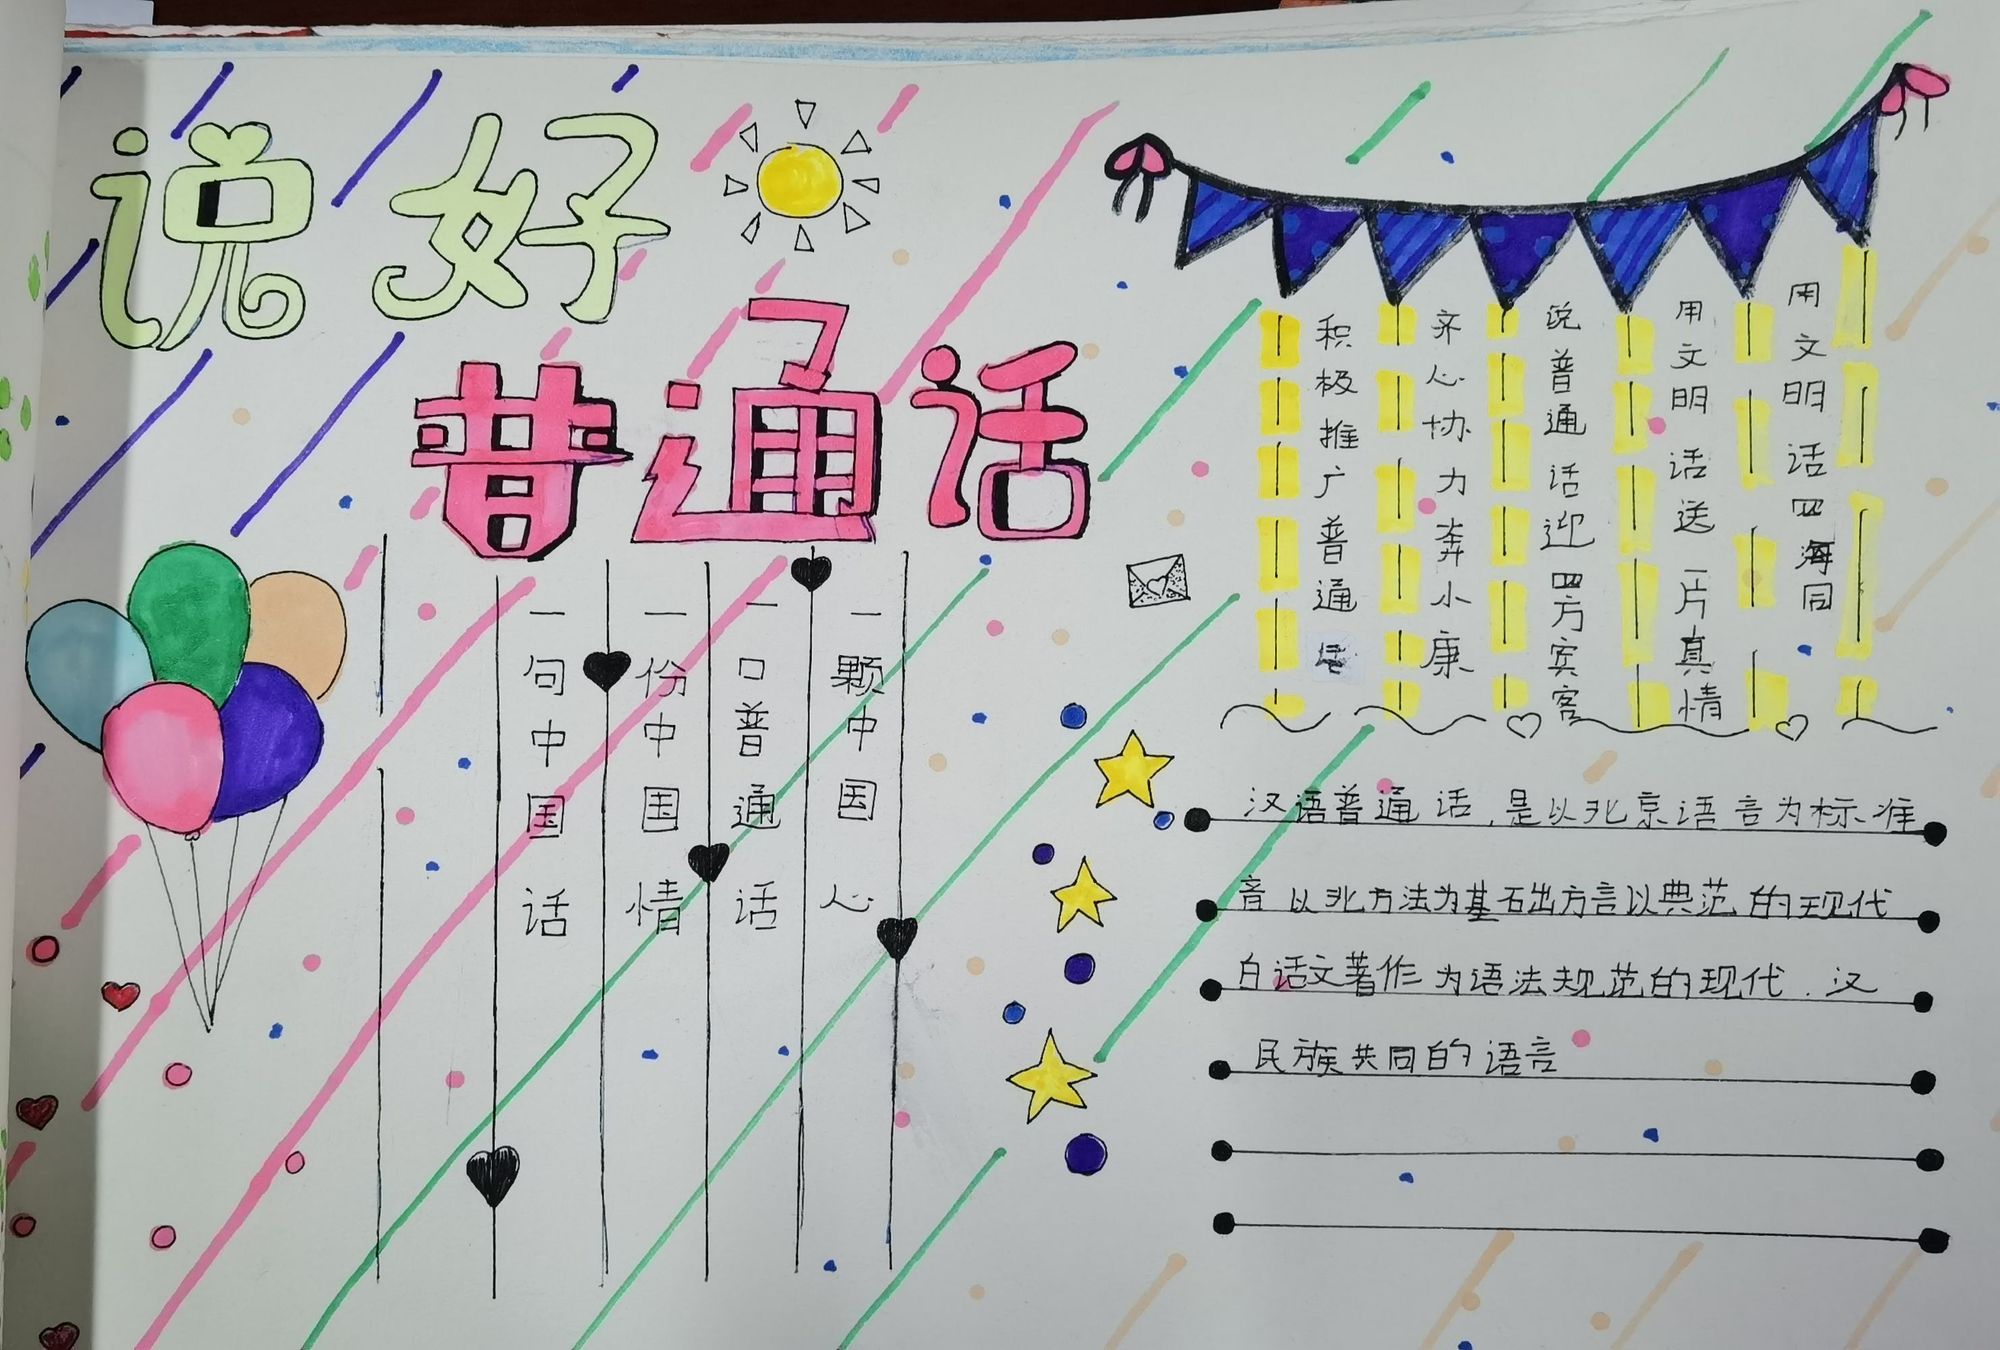 说好
普通话
一颗中国心
一口普通话
一份中国情
一句中国话
用文明话四海同
用文明话送一片真情
说普通话迎四方宾客
齐心协力奔小康
积极推广普通
汉语普通话,是以北京语言为标准
音以北方法为基石出方言以典范的现代
白话文著作为语法规范的现代.汉
民族共同的语言